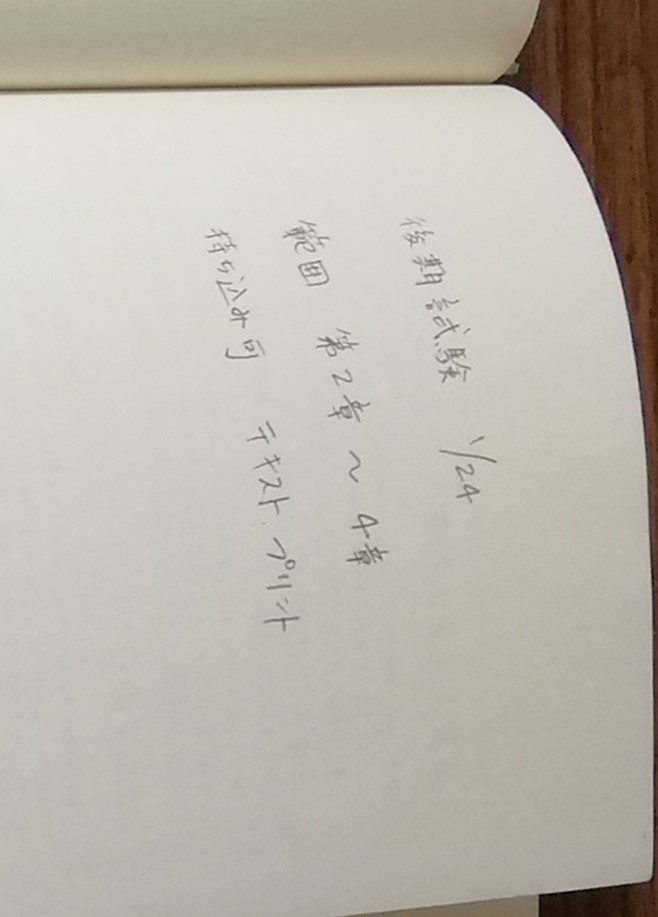 後期試験 1/24
範囲 第2章～4章
持ち込み可 テキスト.プリント